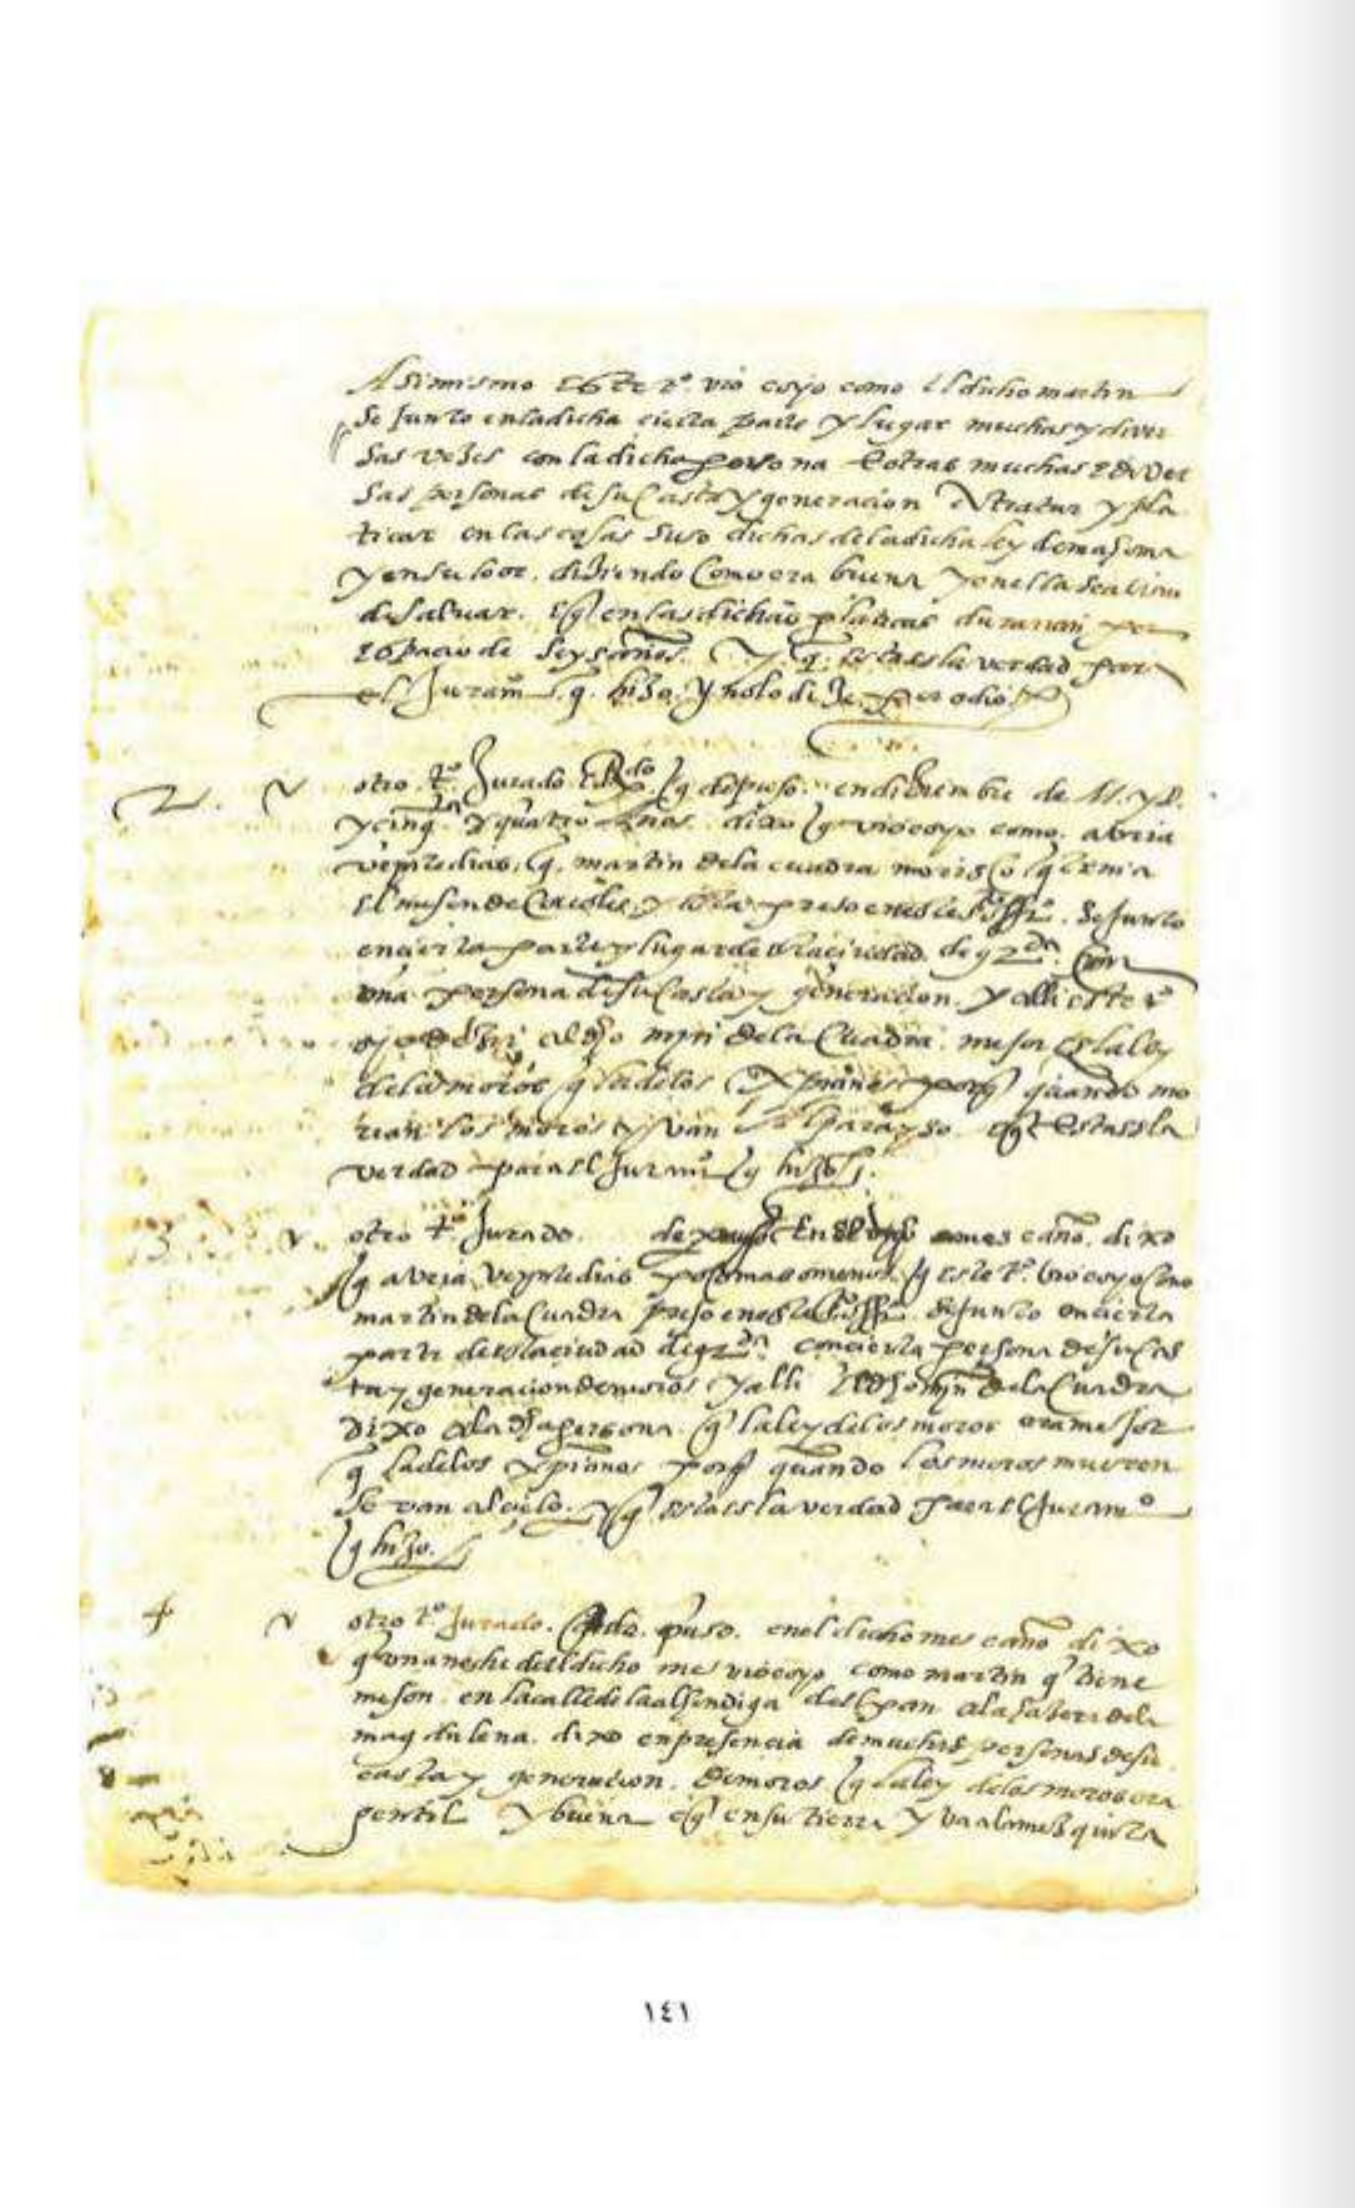 Asimismo este tº vio e oyo como el dicho martin
se Junto en la dicha cierta parte y lugar muchas y diver
sas vezes con la dicha persona e otras muchas e diver
sas personas de su Casta y generacion tratar y pla
ticar en las cosas suso dichas de la dicha ley de mahoma
y en su loor. diziendo Como era buena y en ella se avian
de salvar. e q en las dichas platicas durarian por
espacio de seys años. y q esta es la verdad para
el Juramº q hizo. y no lo dize por odio
2. otro tº Jurado q depuso en diziembre de M. y D.
y cinqta y quatro Años dixo q vio e oyo como. abria
veynte dias, q martin de la cuadra morisco q tenia
el meson de y esta preso en este sto offiº. se junto
en cierta parte y lugar de esta ciudad de gda. Con
una persona de su Casta y generacion. y alli este tº
oyo dezir al dho mjn de la Cuadra. mejor es la ley
de los moros q la de los xpianos porq quando mo
rian los moros se van al parayso. e q esta es la
verdad para el Juramº q hizo.
otro tº Jurado. en el mes e año. dixo
q avria veynte dias poco mas o menos q este tº. vio e oyo como
martin de la Cuadra preso en este sto offiº se junto en cierta
parte de esta ciudad de gda. con cierta persona de su cas
ta y generacion de moros y alli el dho mjn de la Cuadra
dixo a la dha persona q la ley de los moros era mejor
q la de los xpianos porq quando los moros mueren
se van al cielo. y q esta es la verdad para el Juramº
q hizo.
4 otro tº Jurado. q depuso. en el dicho mes e año dixo
q una noche del dicho mes vio e oyo como martin q tiene
meson en la calle de la alhondiga del pan a la de la
magdalena. dixo en presencia de muchas personas de su
casta y generacion. de moros q la ley de los moros era
gentil y buena e q en su tierra y va a la mesquita
١٤١